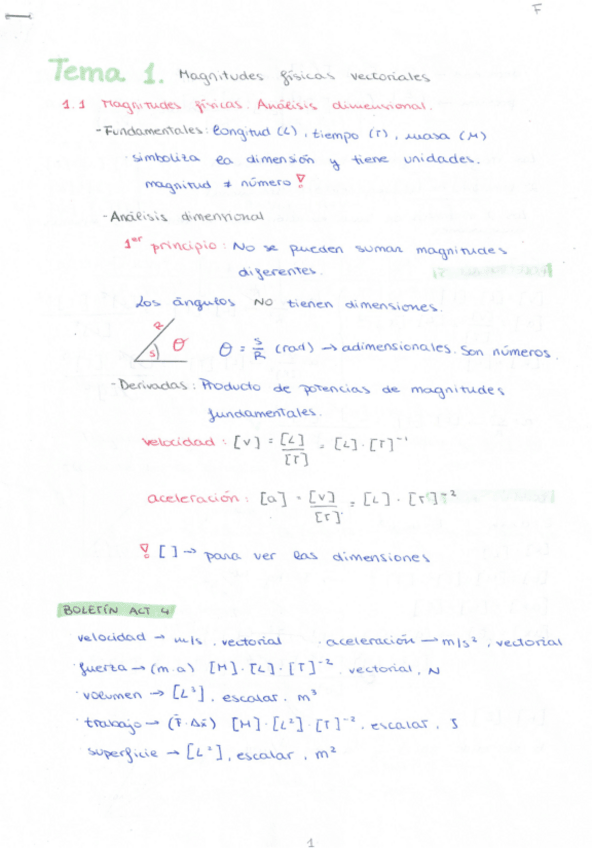 F
Tema 1. Magnitudes físicas vectoriales
1.1 Magnitudes físicas. Análisis dimensional.
-Fundamentales: longitud (L), tiempo (T), masa (M)
· simboliza la dimensión y tiene unidades.
magnitud ≠ número !
-Análisis dimensional
1er principio: No se pueden sumar magnitudes
diferentes.
Los ángulos NO tienen dimensiones.
R
S θ θ = S/R (rad) → adimensionales. Son números.
-Derivadas: Producto de potencias de magnitudes
fundamentales.
velocidad: [v] = [L]/[T] = [L]·[T]⁻¹
aceleración: [a] = [v]/[T] = [L]·[T]⁻²
! [ ] → para ver las dimensiones
BOLETÍN ACT 4
velocidad → m/s, vectorial · aceleración → m/s², vectorial
· fuerza → (m·a) [M]·[L]·[T]⁻², vectorial, N
· volumen → [L³], escalar, m³
· trabajo → (F·Δx) [M]·[L²]·[T]⁻², escalar, J
· superficie → [L²], escalar, m²
1